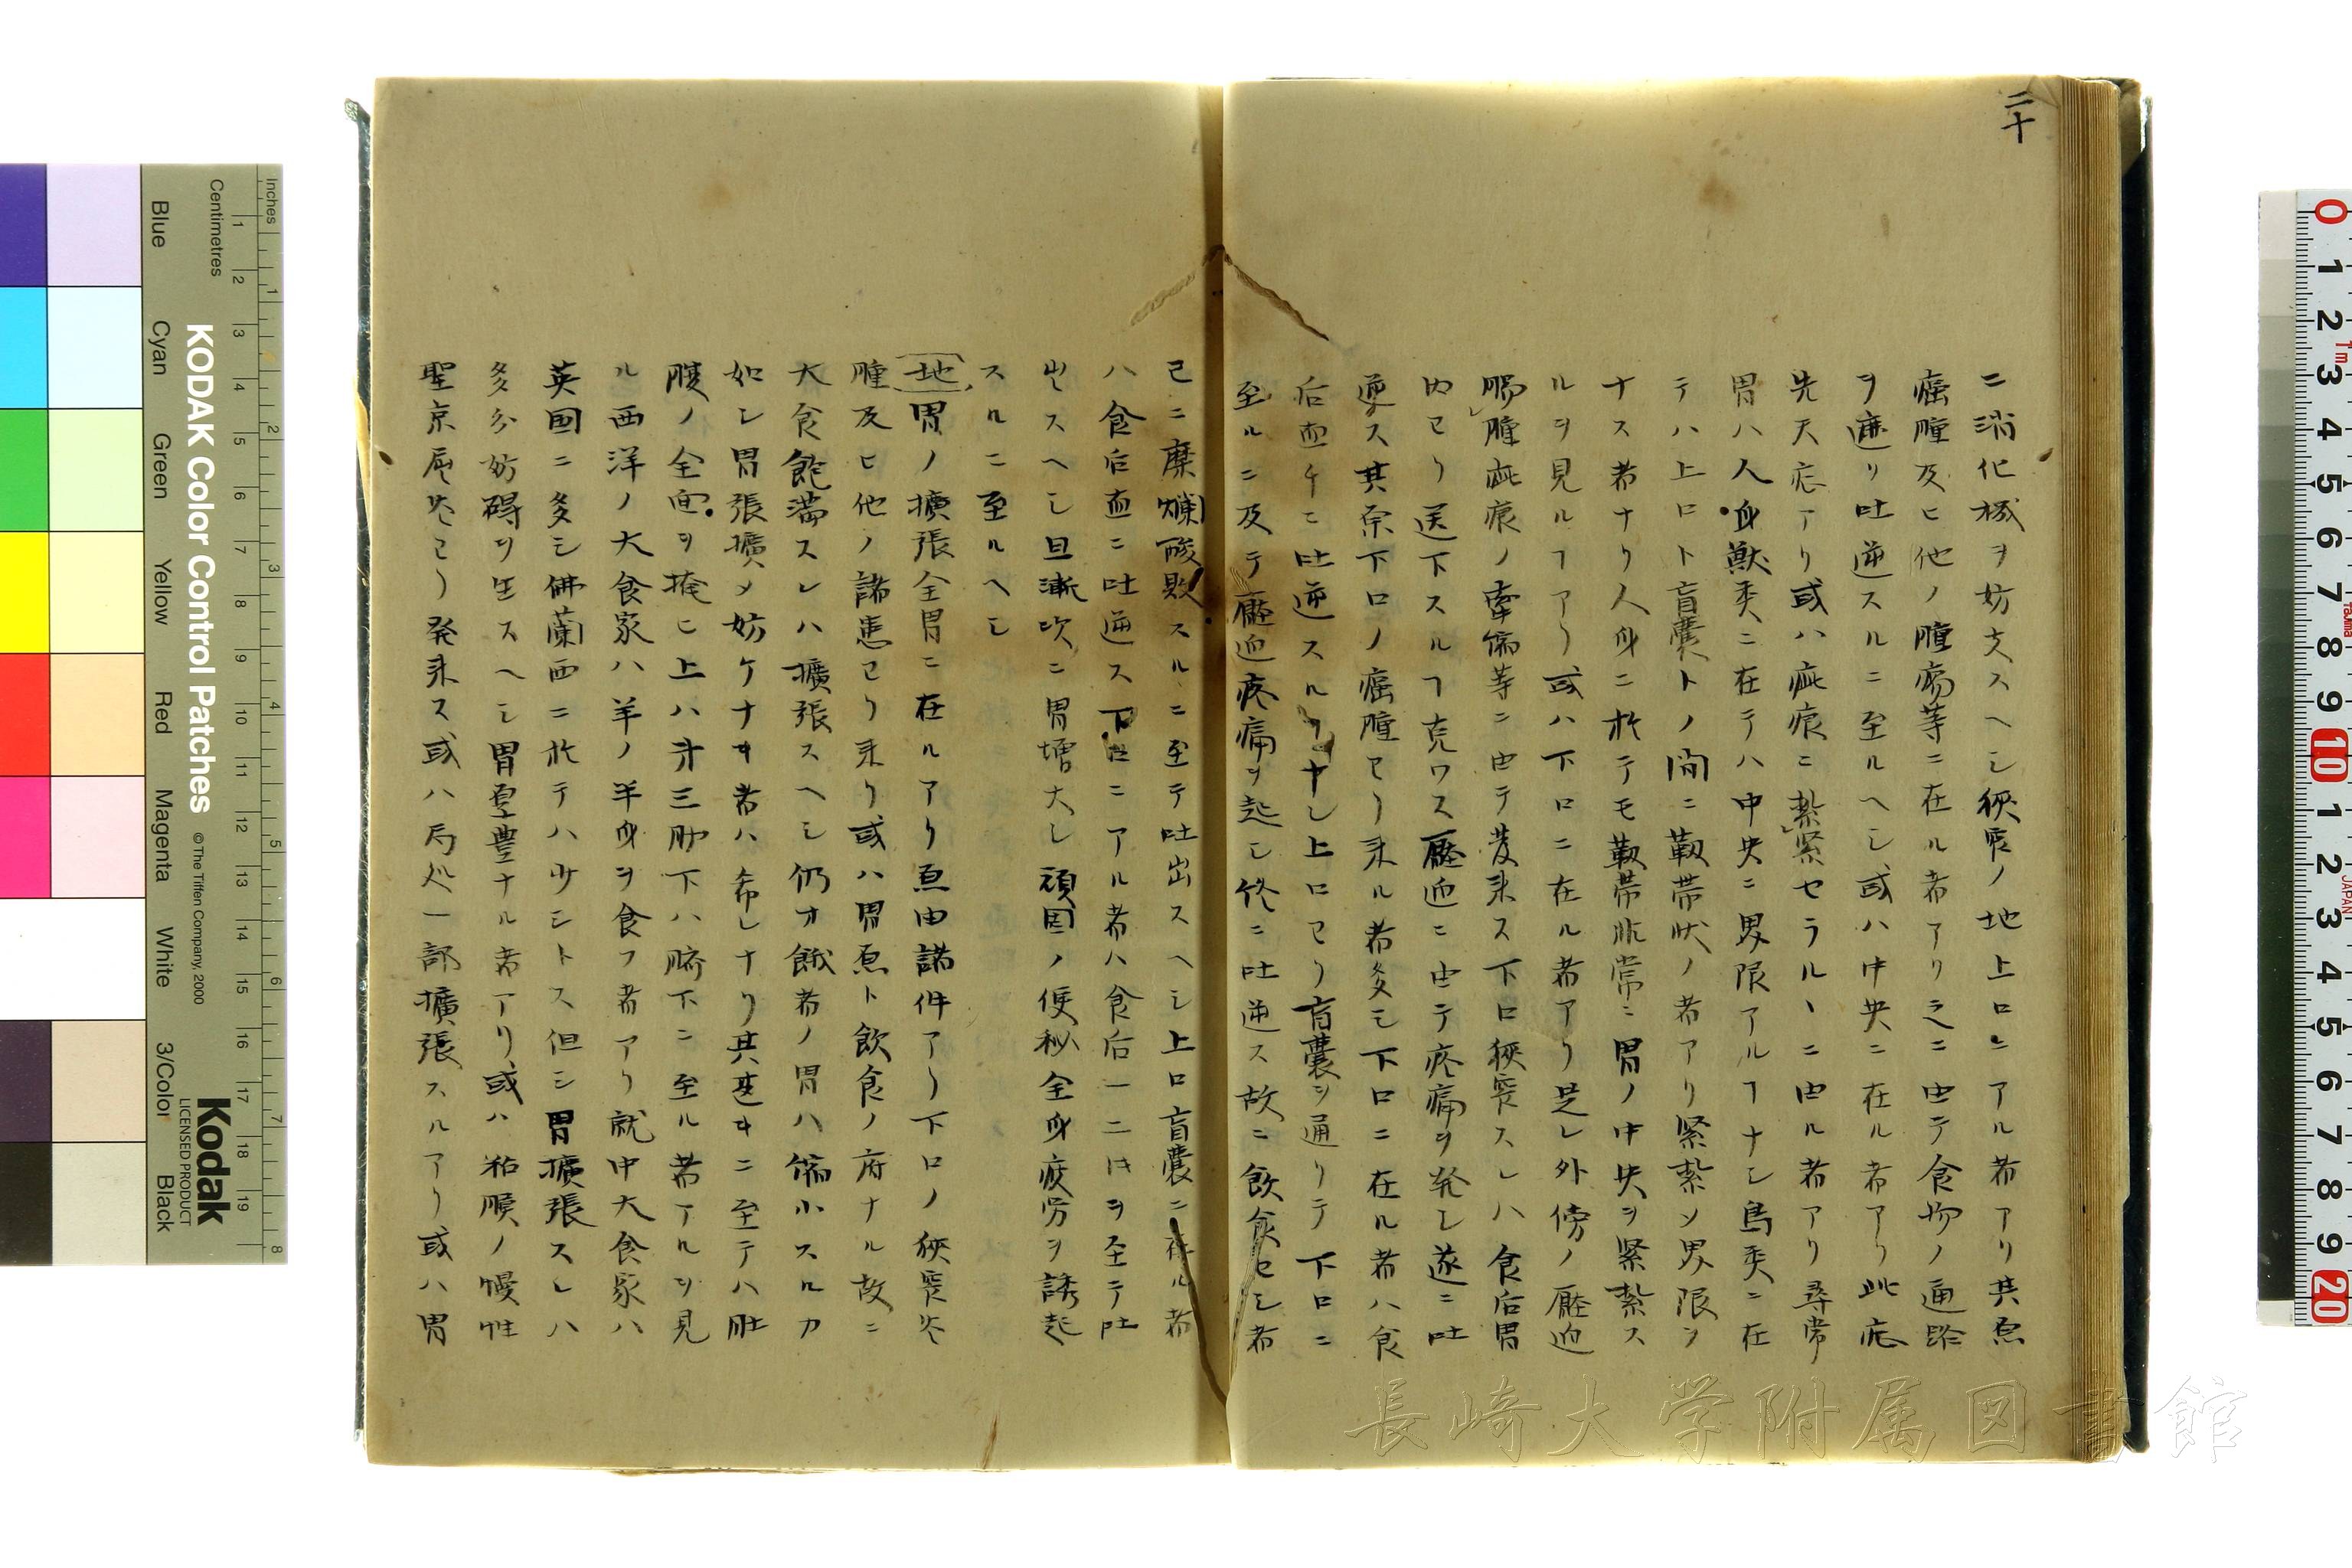 二十
ニ消化機ヲ妨支スヘシ狹窄ノ地上口ニアル者アリ其原
癌腫及ヒ他ノ腫瘍等ニ在ル者アリ之ニ由テ食物ノ通路
ヲ遮リ吐逆スルニ至ルヘシ或ハ中央ニ在ル者アリ此症
先天症アリ或ハ疵痕ニ紮緊セラルヽニ由ル者アリ尋常
胃ハ人身獣类ニ在テハ中央ニ界限アルヿナシ鳥类ニ在
テハ上口ト盲囊トノ間ニ靱帯状ノ者アリ緊紮ソ界限ヲ
ナス者ナリ人身ニ於テモ靱帯非常ニ胃ノ中央ヲ緊紮ス
ルヲ見ルヿアリ或ハ下口ニ在ル者アリ是レ外傍ノ壓迫
腸腫疵痕ノ牽縮等ニ由テ発来ス下口狹窄スレハ食后胃
内ヨリ送下スルヿ克ワス壓迫ニ由テ疼痛ヲ発シ遂ニ吐
逆ス其原下口ノ癌腫ヨリ来ル者多シ下口ニ在ル者ハ食
后直チニ吐逆スルヿナシ上口ヨリ盲囊ヲ通リテ下口ニ
至ルニ及テ壓迫疼痛ヲ起シ終ニ吐逆ス故ニ飲食セシ者
已ニ糜爛酸敗スルニ至テ吐出スヘシ上口盲囊ニ在ル者
ハ食后直ニ吐逆ス下口ニアル者ハ食后一二时ヲ至テ吐
出スヘシ且漸次ニ胃増大シ頑固ノ便秘全身疲労ヲ誘起
スルニ至ルヘシ
地胃ノ擴張全胃ニ在ルアリ原由諸件アリ下口ノ狹窄
腫及ヒ他ノ諸患ヨリ来リ或ハ胃原ト飲食ノ府ナル故ニ
大食飽満スレハ擴張スヘシ仍オ餓者ノ胃ハ縮小スルカ
如シ胃張擴メ妨ケナキ者ハ希レナリ其甚キニ至テハ肚
腹ノ全面ヲ掩ヒ上ハ𠂹三肋下ハ臍下ニ至ル者アルヲ見
ル西洋ノ大食家ハ羊ノ半身ヲ食フ者アリ就中大食家ハ
英国ニ多シ佛蘭西ニ於テハ少シトス但シ胃擴張スレハ
多分妨碍ヲ生スヘシ胃壁豊ナル者アリ或ハ粘膜ノ慢性
聖京扂ヨリ発来ス或ハ局処一部擴張スルアリ或ハ胃
長崎大学附属図書館
KODAK Color Control Patches
© The Tiffen Company, 2000
Kodak
LICENSED PRODUCT
Inches 1 2 3 4 5 6 7 8
Centimetres 1 2 3 4 5 6 7 8 9 10 11 12 13 14 15 16 17 18 19
Blue Cyan Green Yellow Red Magenta White 3/Color Black
0 1 2 3 4 5 6 7 8 9 10 1 2 3 4 5 6 7 8 9 20
JAPAN